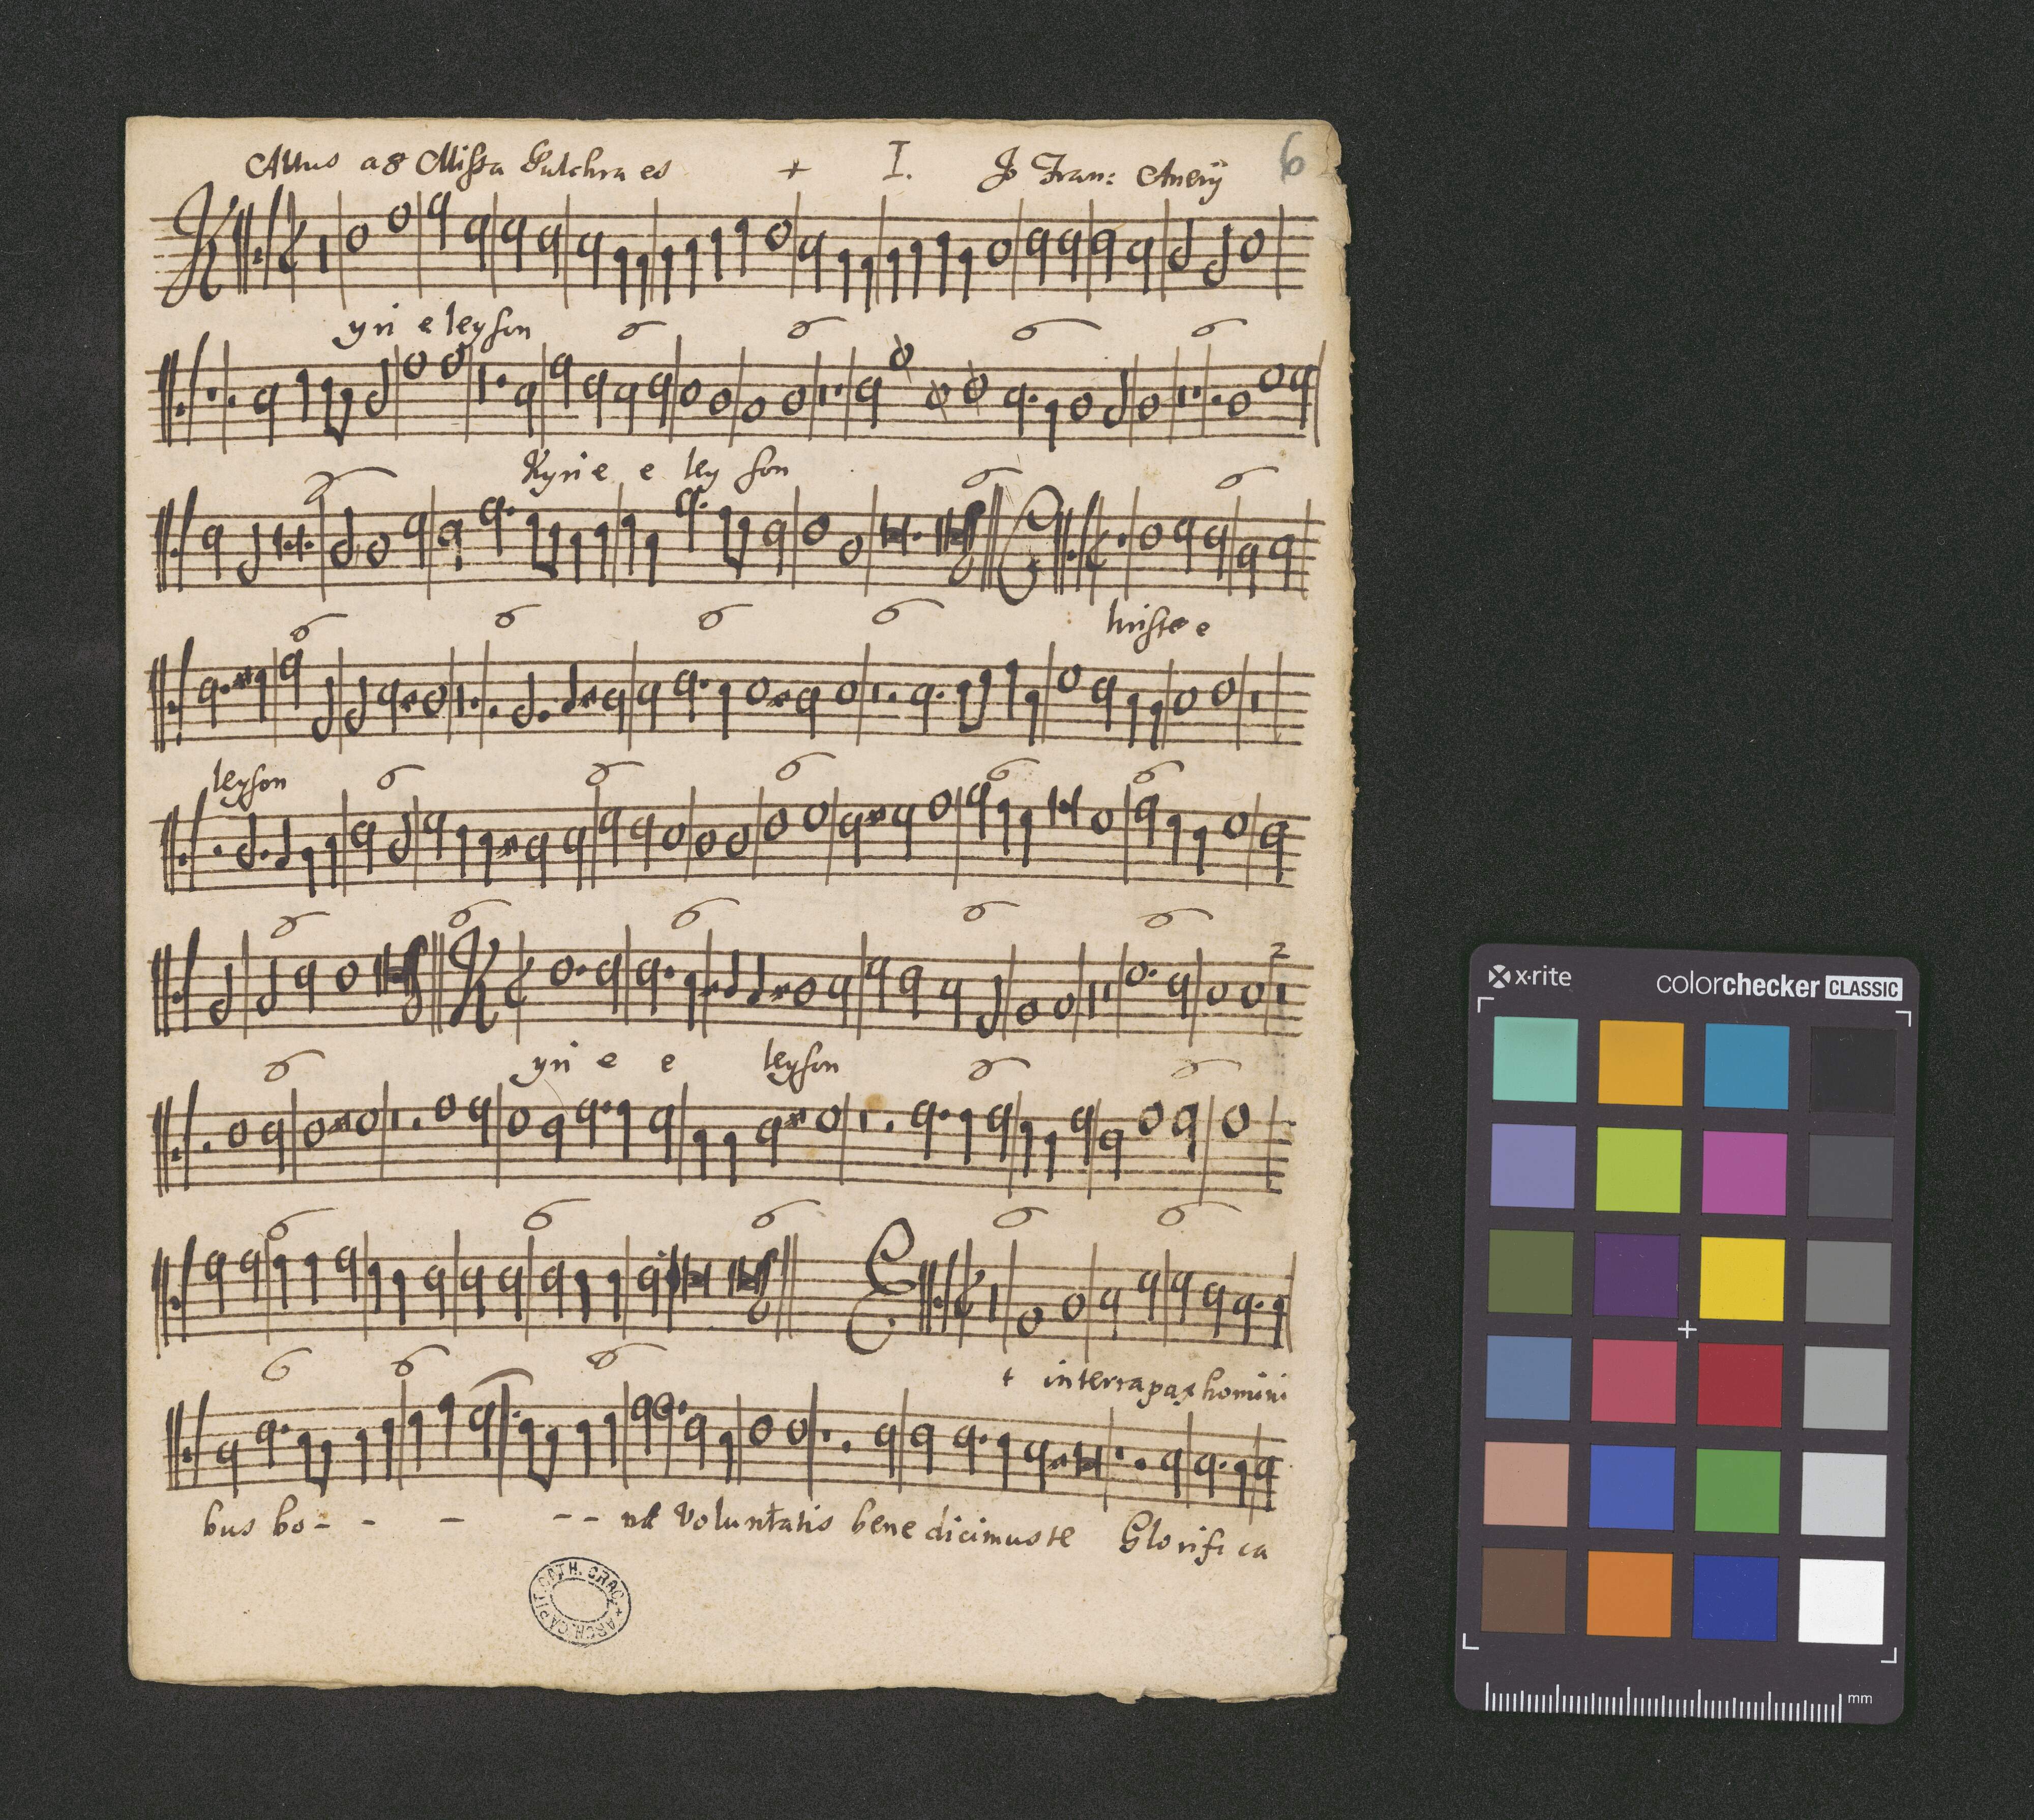 Altus a 8 Missa Pulchra es + I. Jo Fran: Anerÿ 6
K
yri e leyson
Kyri e e ley son
C
hriste e
leyson
K 2
yri e e leyson
E
t in terra pax homini
bus bo - - - - - næ voluntatis bene dicimus te Glorifi ca
ARCH. CAPIT. CATH. CRAC.
x-rite colorchecker CLASSIC
mm